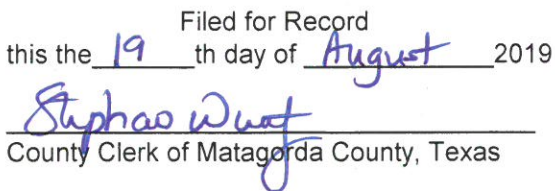 Filed for Record
this the 19 th day of August 2019
County Clerk of Matagorda County, Texas